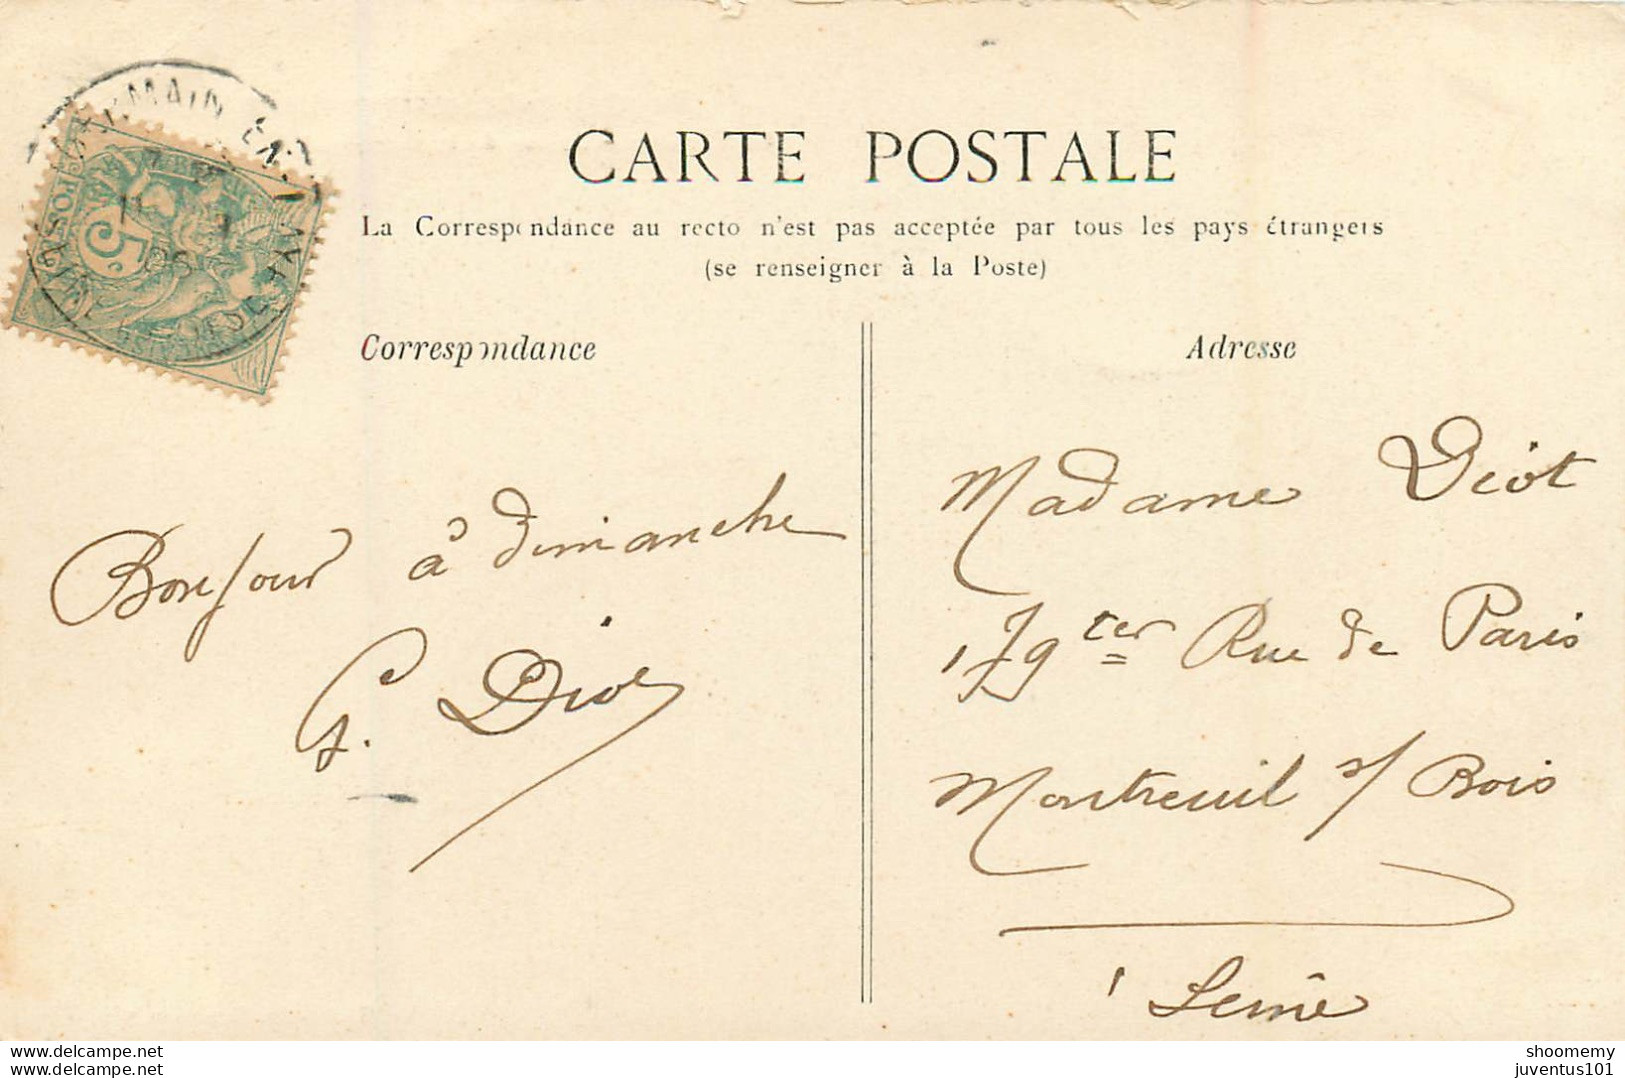 CARTE POSTALE
La Correspondance au recto n'est pas acceptée par tous les pays étrangers
(se renseigner à la Poste)
Correspondance
Adresse
5c
Bonjour à dimanche
Diot
Madame Diot
179 ter Rue de Paris
Montreuil s/ Bois
Seine
www.delcampe.net
shoomemy
www.delcampe.net
juventus101